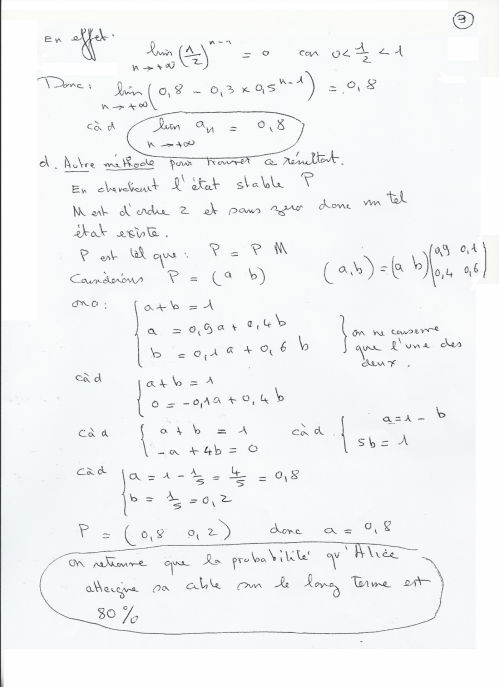 3
En effet.
lim n→+∞ (1/2)^(n-1) = 0 car 0<1/2<1
Donc: lim n→+∞ (0,8 - 0,3 × 0,5^(n-1)) = 0,8
càd lim n→+∞ an = 0,8
d. Autre méthode pour trouver ce résultat.
En cherchant l'état stable P
M est d'ordre 2 et sans zero donc un tel
état existe.
P est tel que: P = P M
Considérons P = (a b) (a,b) = (a b) (0,9 0,1 / 0,4 0,6)
on a: { a+b = 1
a = 0,9a + 0,4b
b = 0,1a + 0,6b } on ne conserve
que l'une des
deux.
càd { a+b = 1
0 = -0,1a + 0,4b
càd { a + b = 1 càd { a = 1 - b
-a + 4b = 0 5b = 1
càd { a = 1 - 1/5 = 4/5 = 0,8
b = 1/5 = 0,2
P = (0,8 0,2) donc a = 0,8
on retrouve que la probabilité qu'Alice
atteigne sa cible sur le long terme est
80%